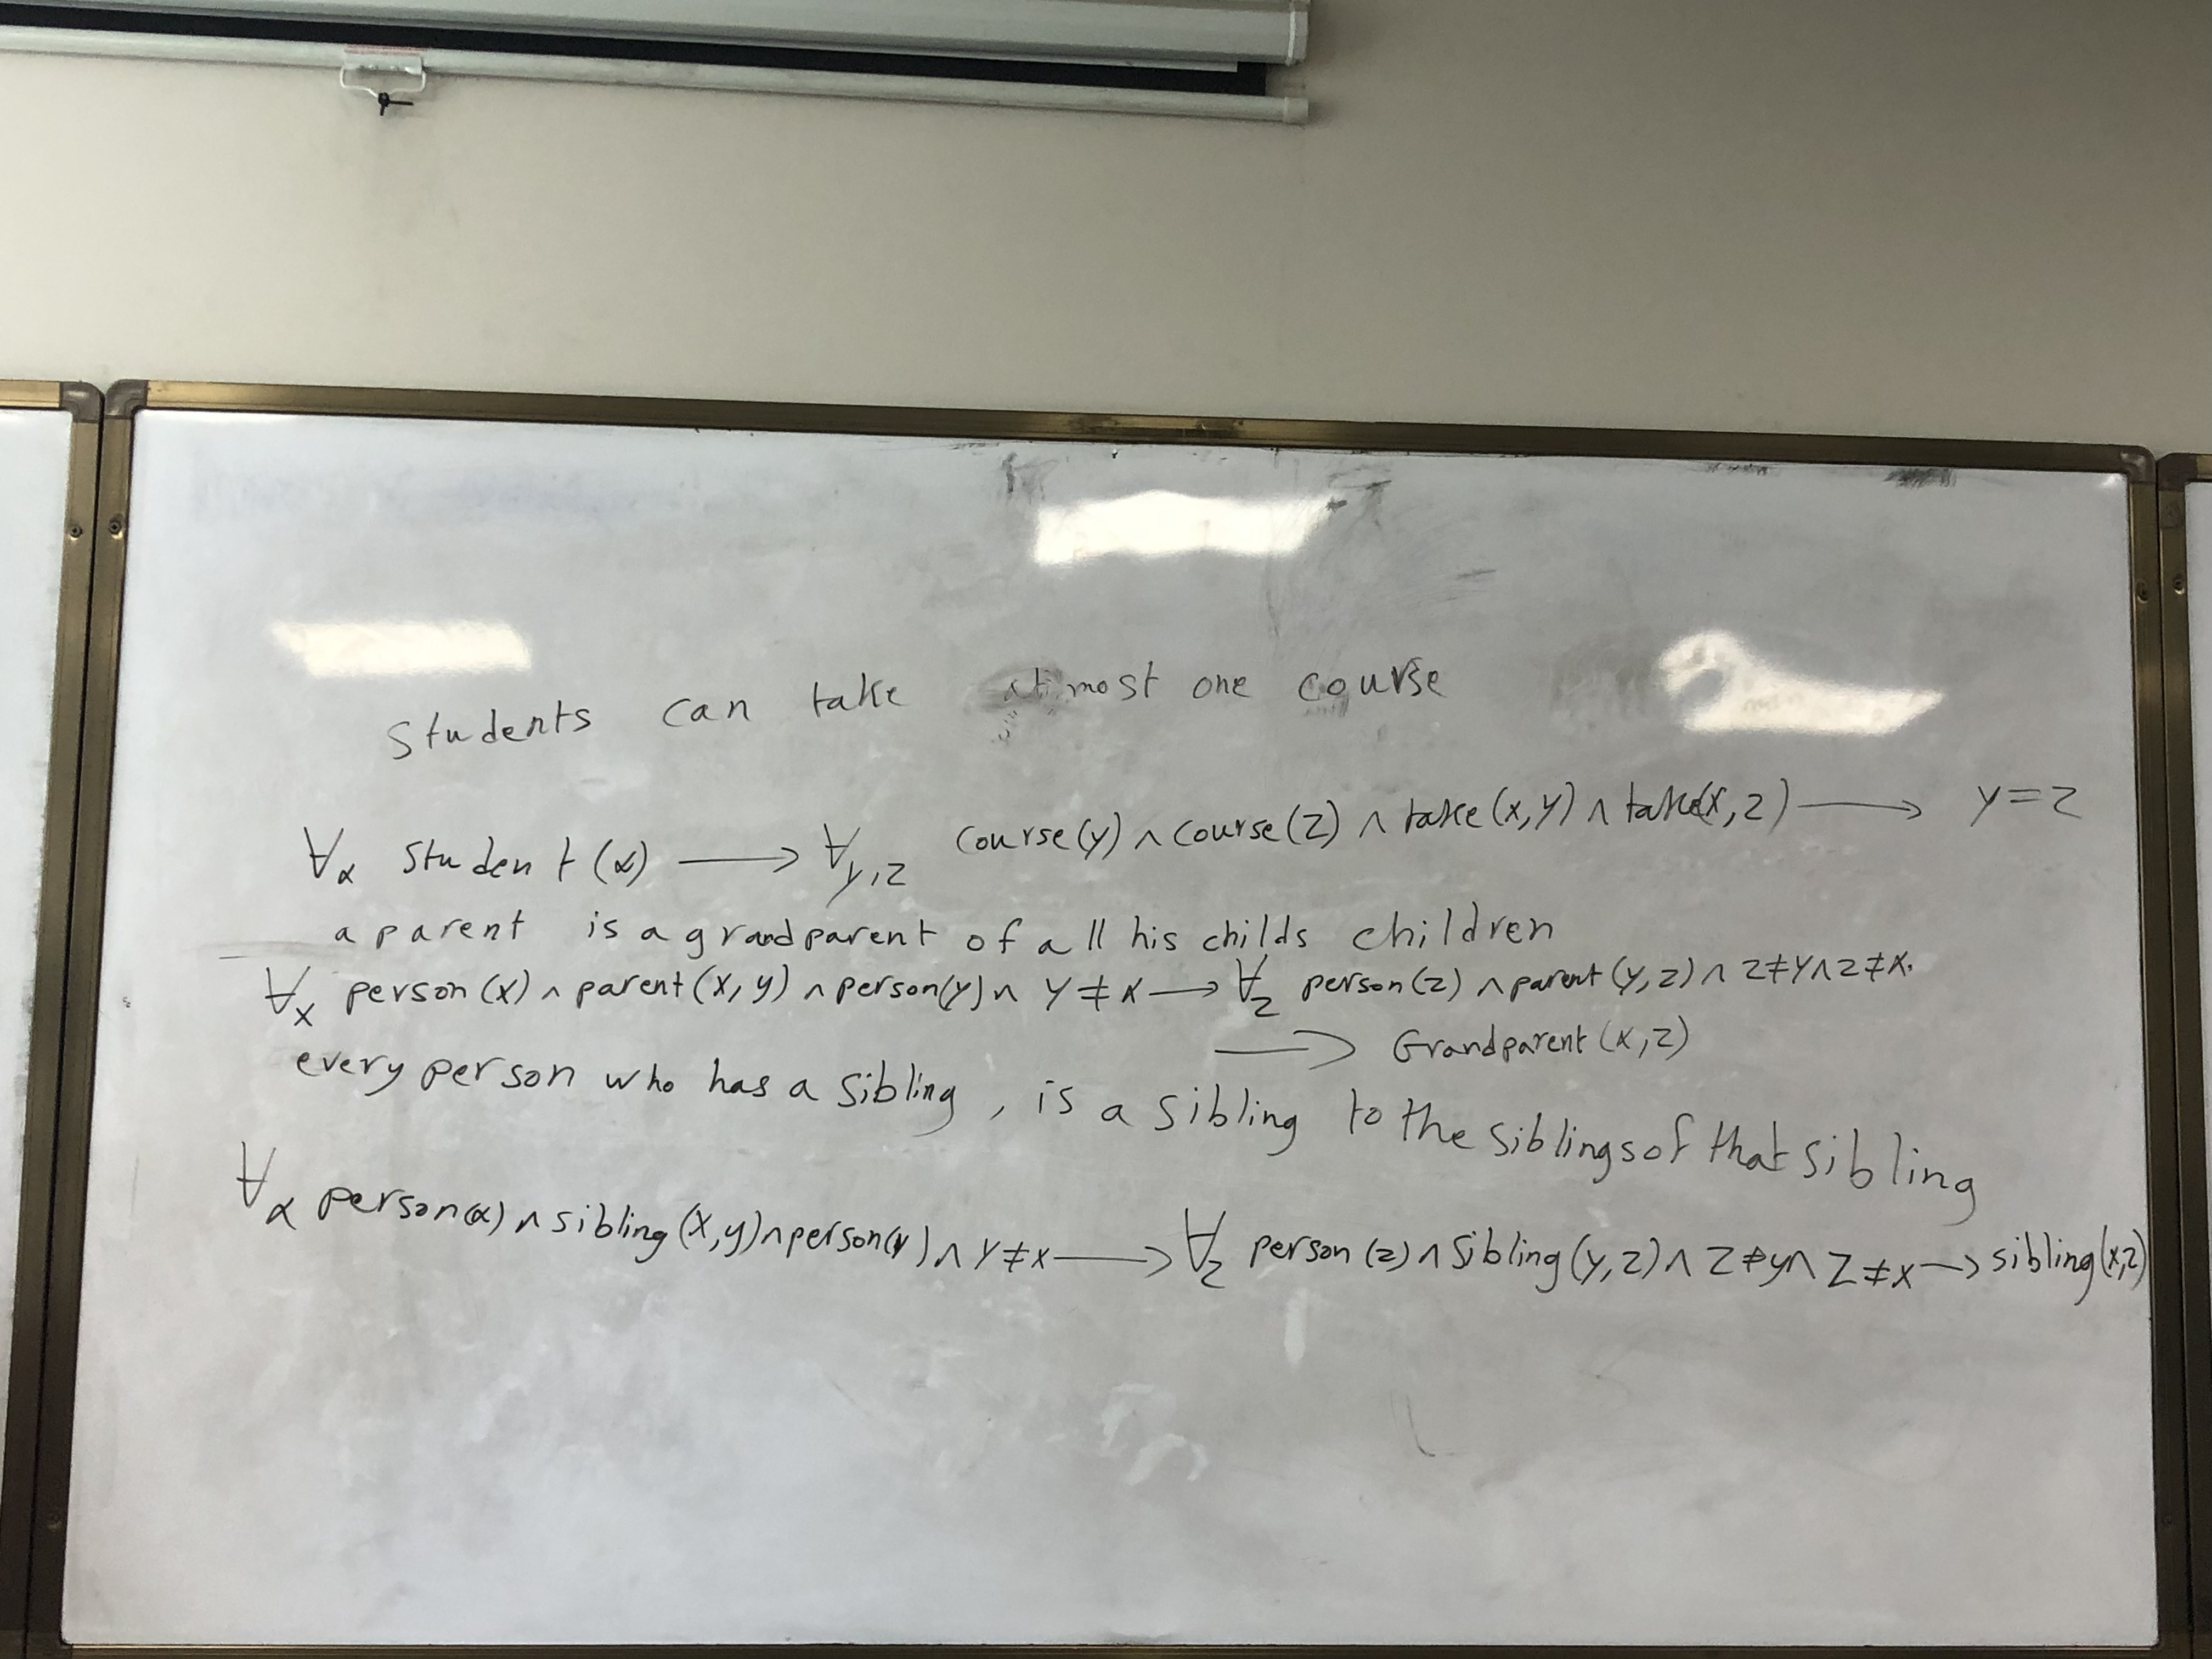 Students can take at most one course
∀x student(x) ⟶ ∀y,z course(y) ∧ course(z) ∧ take(x,y) ∧ take(x,z) ⟶ y=z
a parent is a grandparent of all his childs children
∀x person(x) ∧ parent(x,y) ∧ person(y) ∧ y≠x ⟶ ∀z person(z) ∧ parent(y,z) ∧ z≠y ∧ z≠x.
⟶ Grandparent(x,z)
every person who has a sibling, is a sibling to the siblings of that sibling
∀x person(x) ∧ sibling(x,y) ∧ person(y) ∧ y≠x ⟶ ∀z person(z) ∧ sibling(y,z) ∧ z≠y ∧ z≠x ⟶ sibling(x,z)